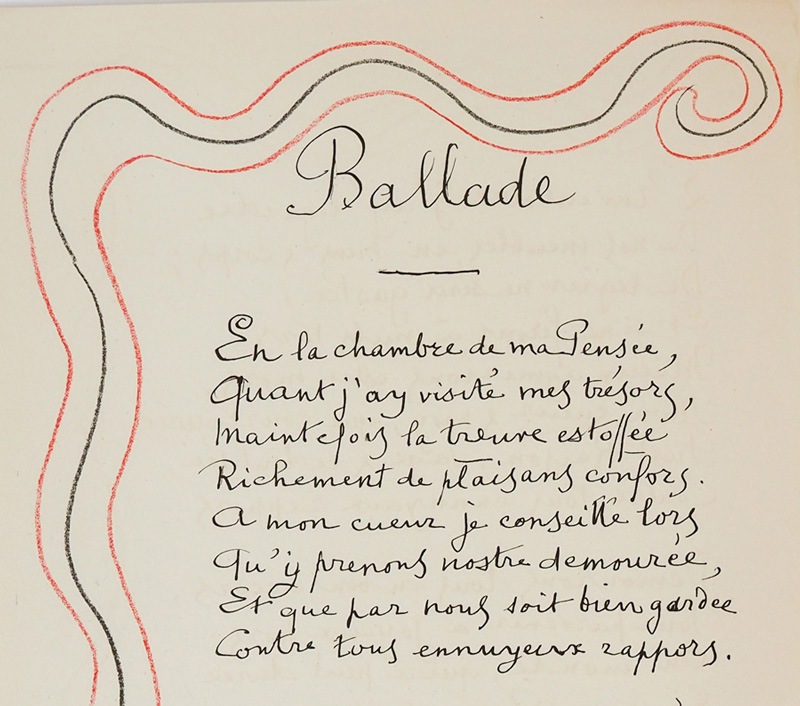 Ballade
En la chambre de ma Pensée,
Quant j'ay visité mes trésors,
Maintefois la treuve estoffée
Richement de plaisans confors.
A mon cueur je conseille lors
Qu'y prenons nostre demourée,
Et que par nous soit bien gardée
Contre tous ennuyeux rappors.